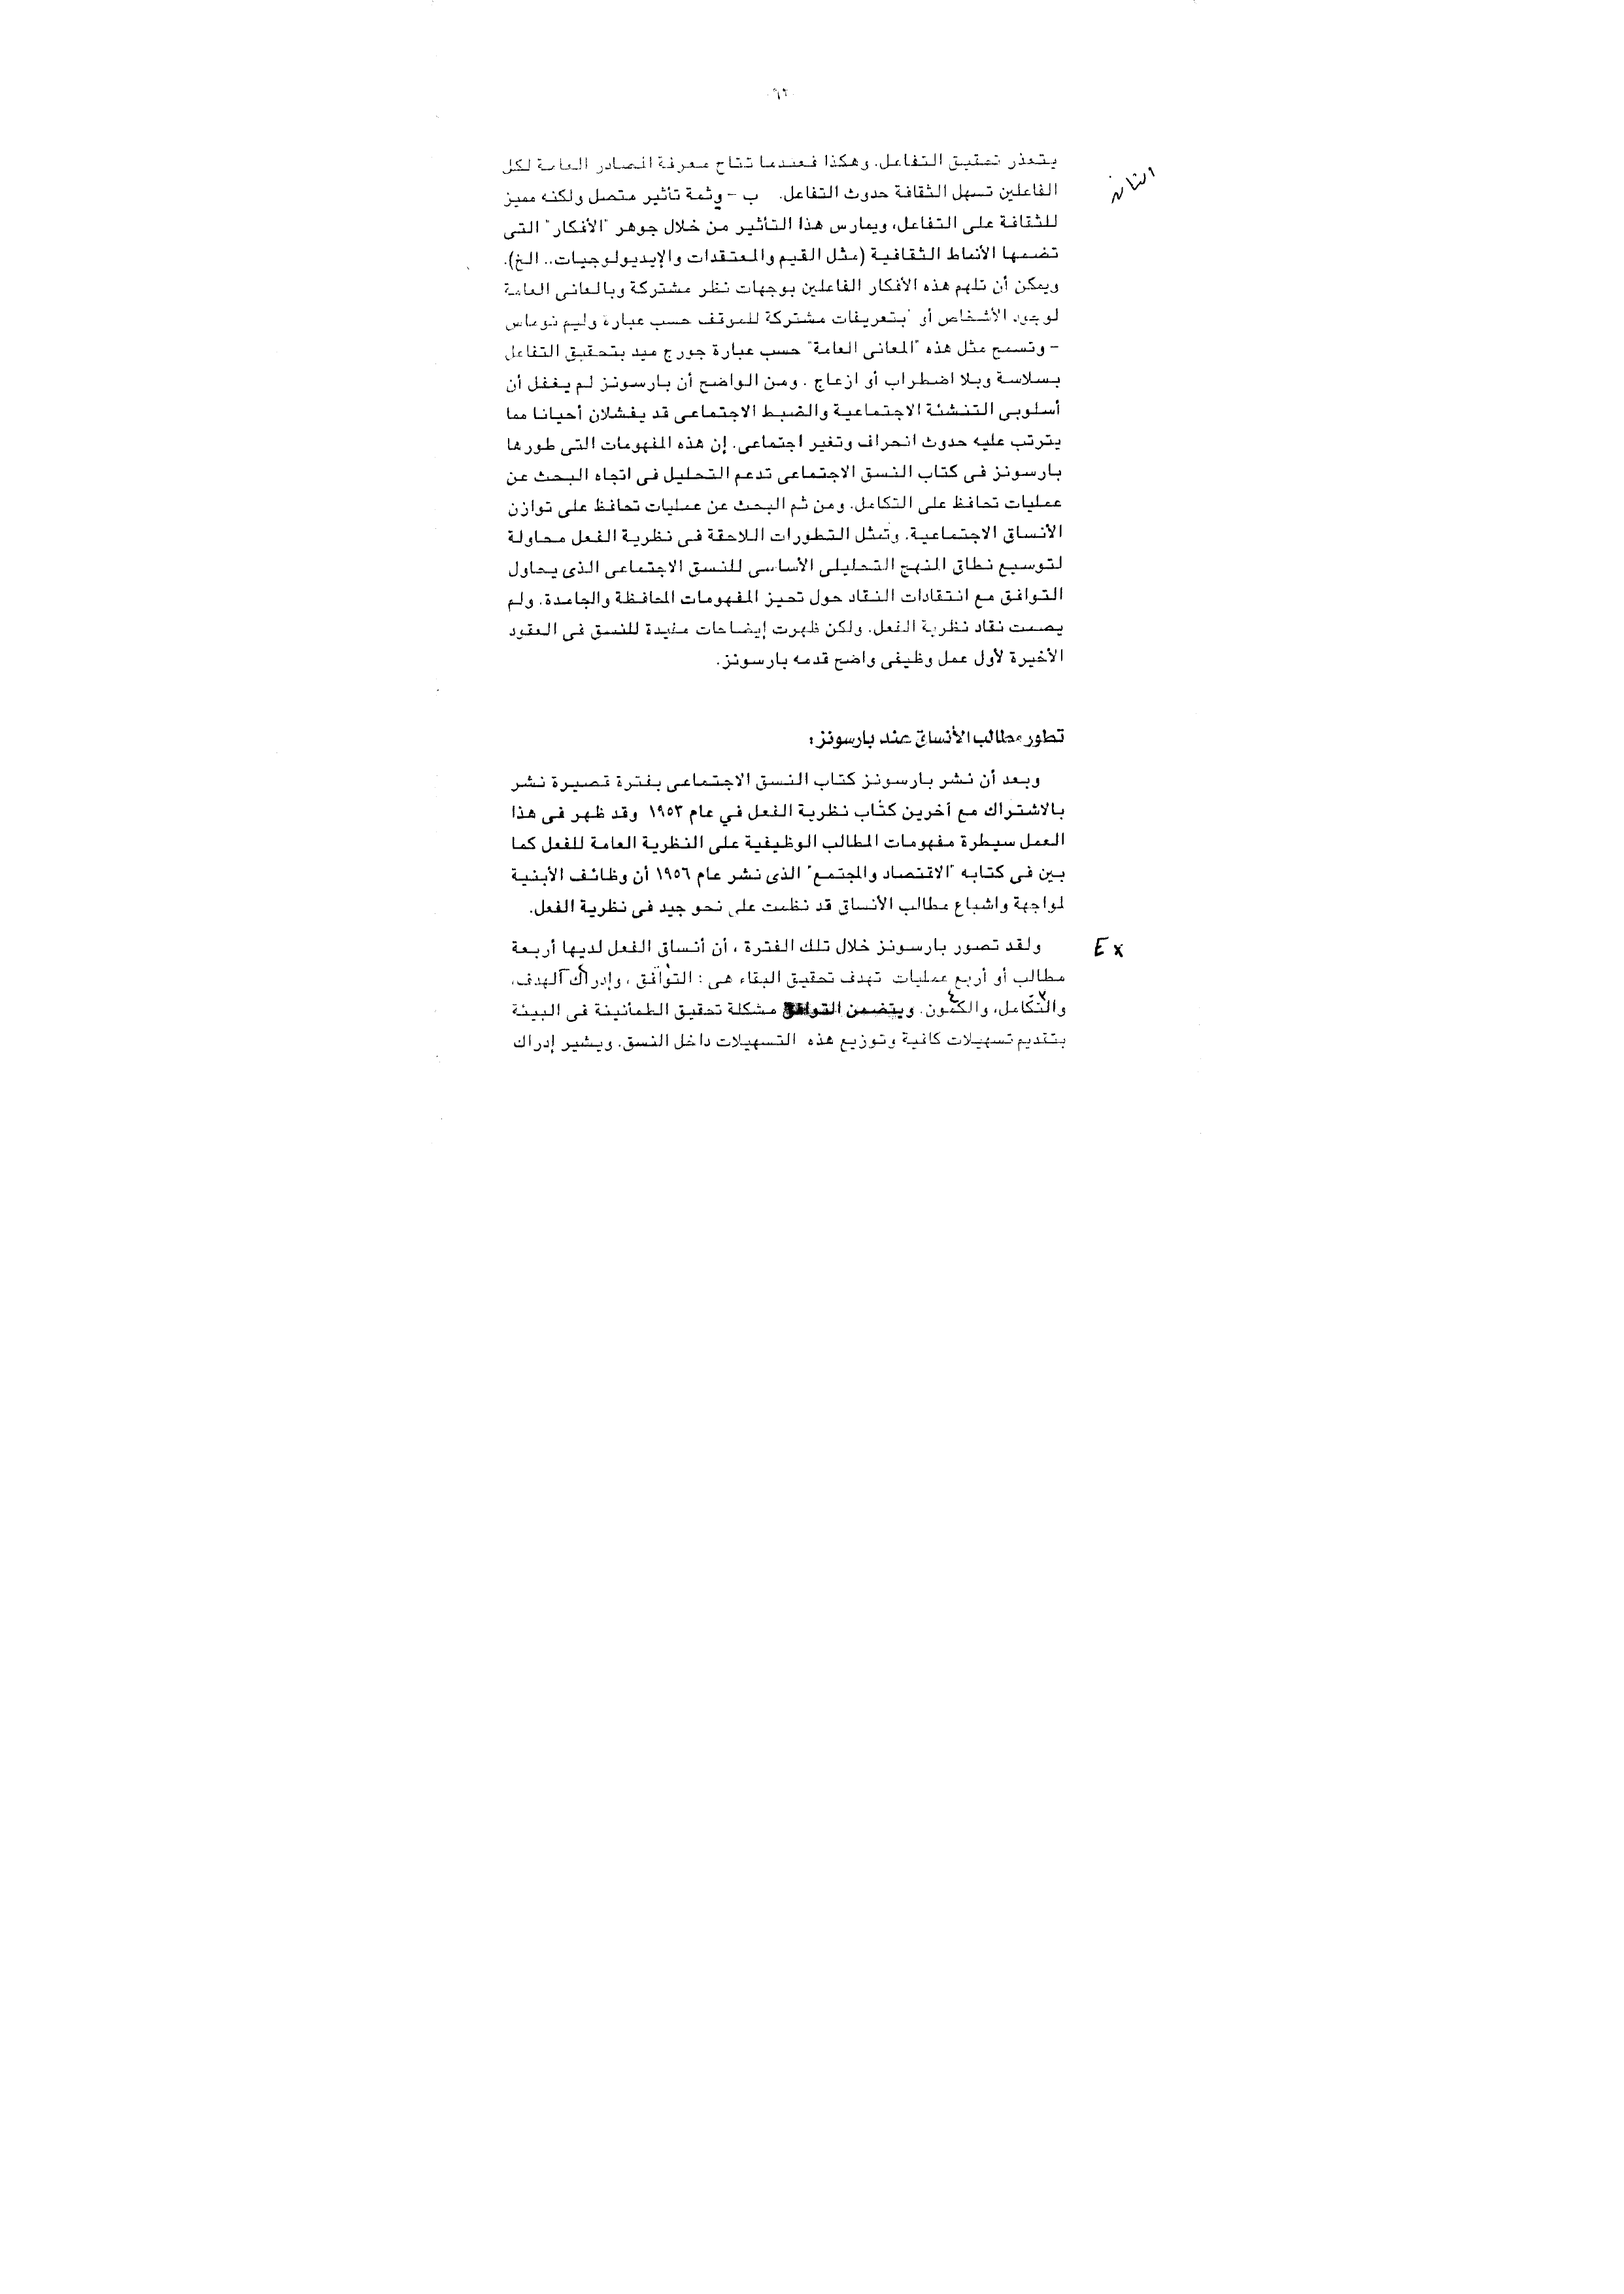 ٦٢
يتعذر تحقيق التفاعل. وهكذا فعندما تتاح معرفة المصادر العامة لكل
الفاعلين تسهل الثقافة حدوث التفاعل. ب - وثمة تأثير متصل ولكنه مميز
للثقافة على التفاعل، ويمارس هذا التأثير من خلال جوهر "الأفكار" التى
تضمها الأنماط الثقافية (مثل القيم والمعتقدات والإيديولوجيات.. الخ).
ويمكن أن تلهم هذه الأفكار الفاعلين بوجهات نظر مشتركة وبالمعانى العامة
لوجود الأشخاص أو "بتعريفات مشتركة للموقف حسب عبارة وليم توماس
- وتسمح مثل هذه "المعانى العامة" حسب عبارة جورج ميد بتحقيق التفاعل
بسلاسة وبلا اضطراب أو ازعاج . ومن الواضح أن بارسونز لم يغفل أن
أسلوبى التنشئة الاجتماعية والضبط الاجتماعى قد يفشلان أحيانا مما
يترتب عليه حدوث انحراف وتغير اجتماعى. إن هذه المفهومات التى طورها
بارسونز فى كتاب النسق الاجتماعى تدعم التحليل فى اتجاه البحث عن
عمليات تحافظ على التكامل. ومن ثم البحث عن عمليات تحافظ على توازن
الأنساق الاجتماعية. وتمثل التطورات اللاحقة فى نظرية الفعل محاولة
لتوسيع نطاق المنهج التحليلى الأساسى للنسق الاجتماعى الذى يحاول
التوافق مع انتقادات النقاد حول تحيز المفهومات المحافظة والجامدة. ولم
يصمت نقاد نظرية الفعل. ولكن ظهرت إيضاحات مفيدة للنسق فى العقود
الأخيرة لأول عمل وظيفى واضح قدمه بارسونز.
تطور مطالب الأنساق عند بارسونز:
وبعد أن نشر بارسونز كتاب النسق الاجتماعى بفترة قصيرة نشر
بالاشتراك مع آخرين كتاب نظرية الفعل في عام ١٩٥٣ وقد ظهر فى هذا
العمل سيطرة مفهومات المطالب الوظيفية على النظرية العامة للفعل كما
بين فى كتابه "الاقتصاد والمجتمع" الذى نشر عام ١٩٥٦ أن وظائف الأبنية
لمواجهة واشباع مطالب الأنساق قد نظمت على نحو جيد فى نظرية الفعل.
Ex ولقد تصور بارسونز خلال تلك الفترة ، أن أنساق الفعل لديها أربعة
مطالب أو أربع عمليات تهدف تحقيق البقاء هى : التوافق ، وإدراك الهدف،
والتكامل، والكمون. ويتضمن التوافق مشكلة تحقيق الطمأنينة فى البيئة
بتقديم تسهيلات كافية وتوزيع هذه التسهيلات داخل النسق. ويشير إدراك